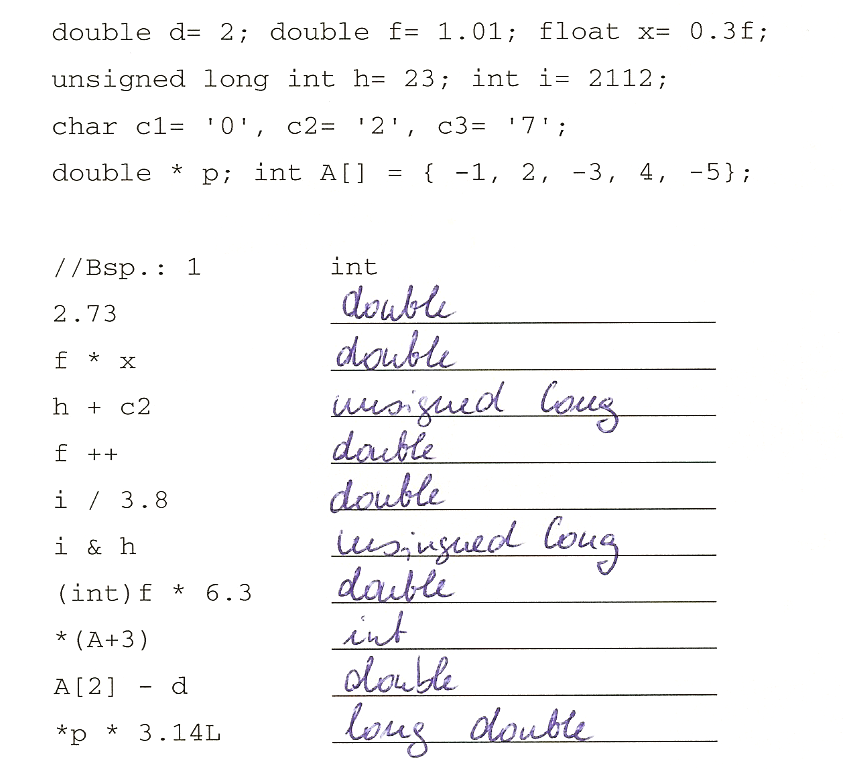 double d= 2; double f= 1.01; float x= 0.3f;
unsigned long int h= 23; int i= 2112;
char c1= '0', c2= '2', c3= '7';
double * p; int A[] = { -1, 2, -3, 4, -5};
//Bsp.: 1 int
2.73 double
f * x double
h + c2 unsigned long
f ++ double
i / 3.8 double
i & h unsingued long
(int)f * 6.3 double
*(A+3) int
A[2] - d double
*p * 3.14L long double